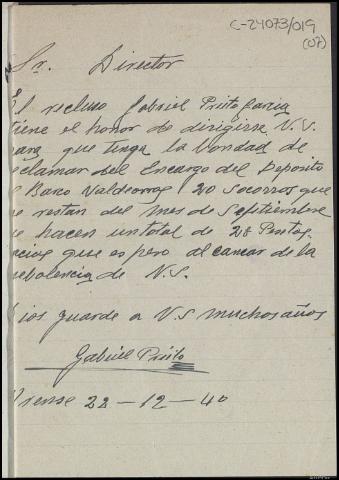 C-24073/019
(07)
Sr. Director
El recluso Gabriel Prieto Garcia
tiene el honor de dirigirse V.S.
para que tenga la Vondad de
reclamar del Encargo del Deposito
Barco Valdeorras 20 socorros que
le restan del mes de Septiembre
que hacen un total de 28 Pesetas.
Gracias que espero alcanzar de la
nebolencia de V.S.
Dios guarde a V.S muchos años
Gabriel Prieto
Orense 22 – 12 – 40